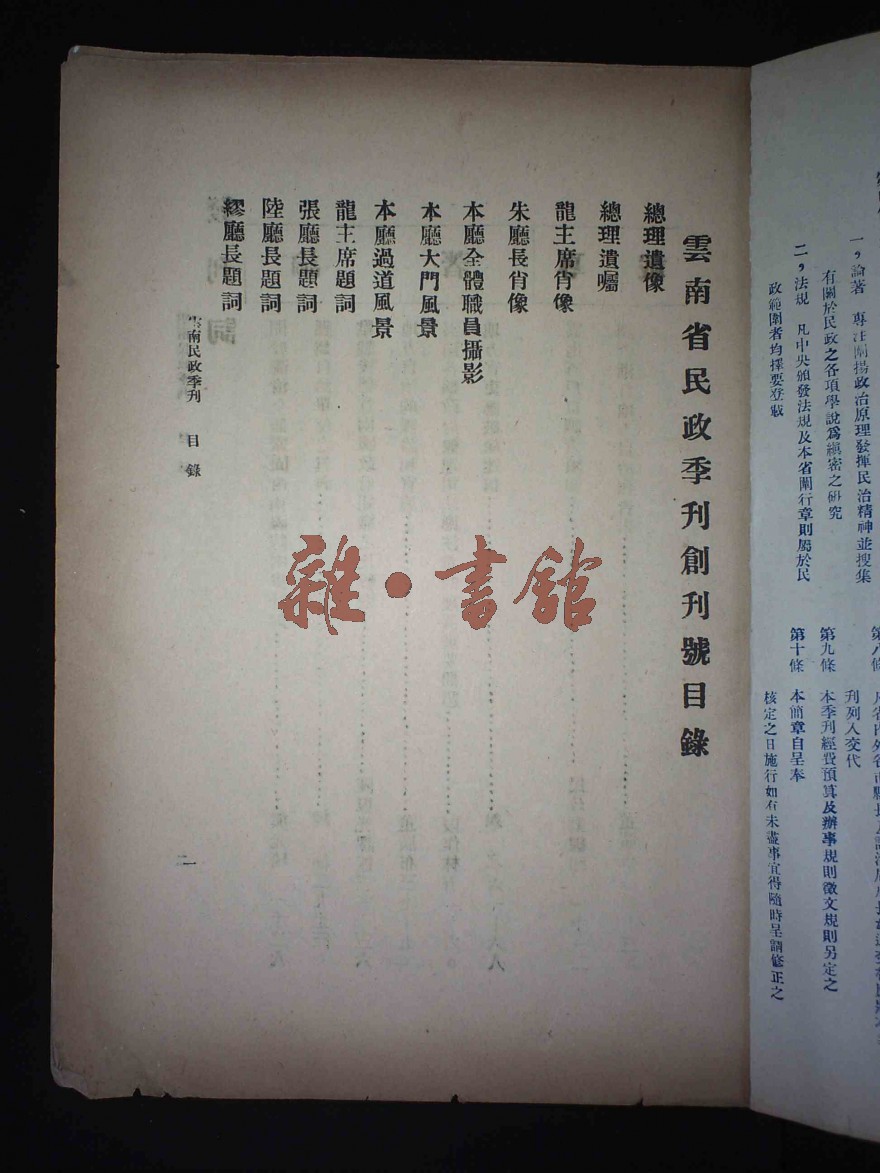 一，論著　專注闡揚政治原理發揮民治精神並搜集
有關於民政之各項學說爲縝密之研究
二，法規　凡中央頒發法規及本省單行章則屬於民
政範圍者均擇要登載
刊列入交代
第九條　本季刊經費預算及辦事規則徵文規則另定之
第十條　本簡章自呈奉
核定之日施行如有未盡事宜得隨時呈請修正之
雲南省民政季刊創刊號目錄
總理遺像
總理遺囑
龍主席肖像
朱廳長肖像
本廳全體職員攝影
本廳大門風景
本廳過道風景
龍主席題詞
張廳長題詞
陸廳長題詞
繆廳長題詞
雲南民政季刊　目錄
雜·書館